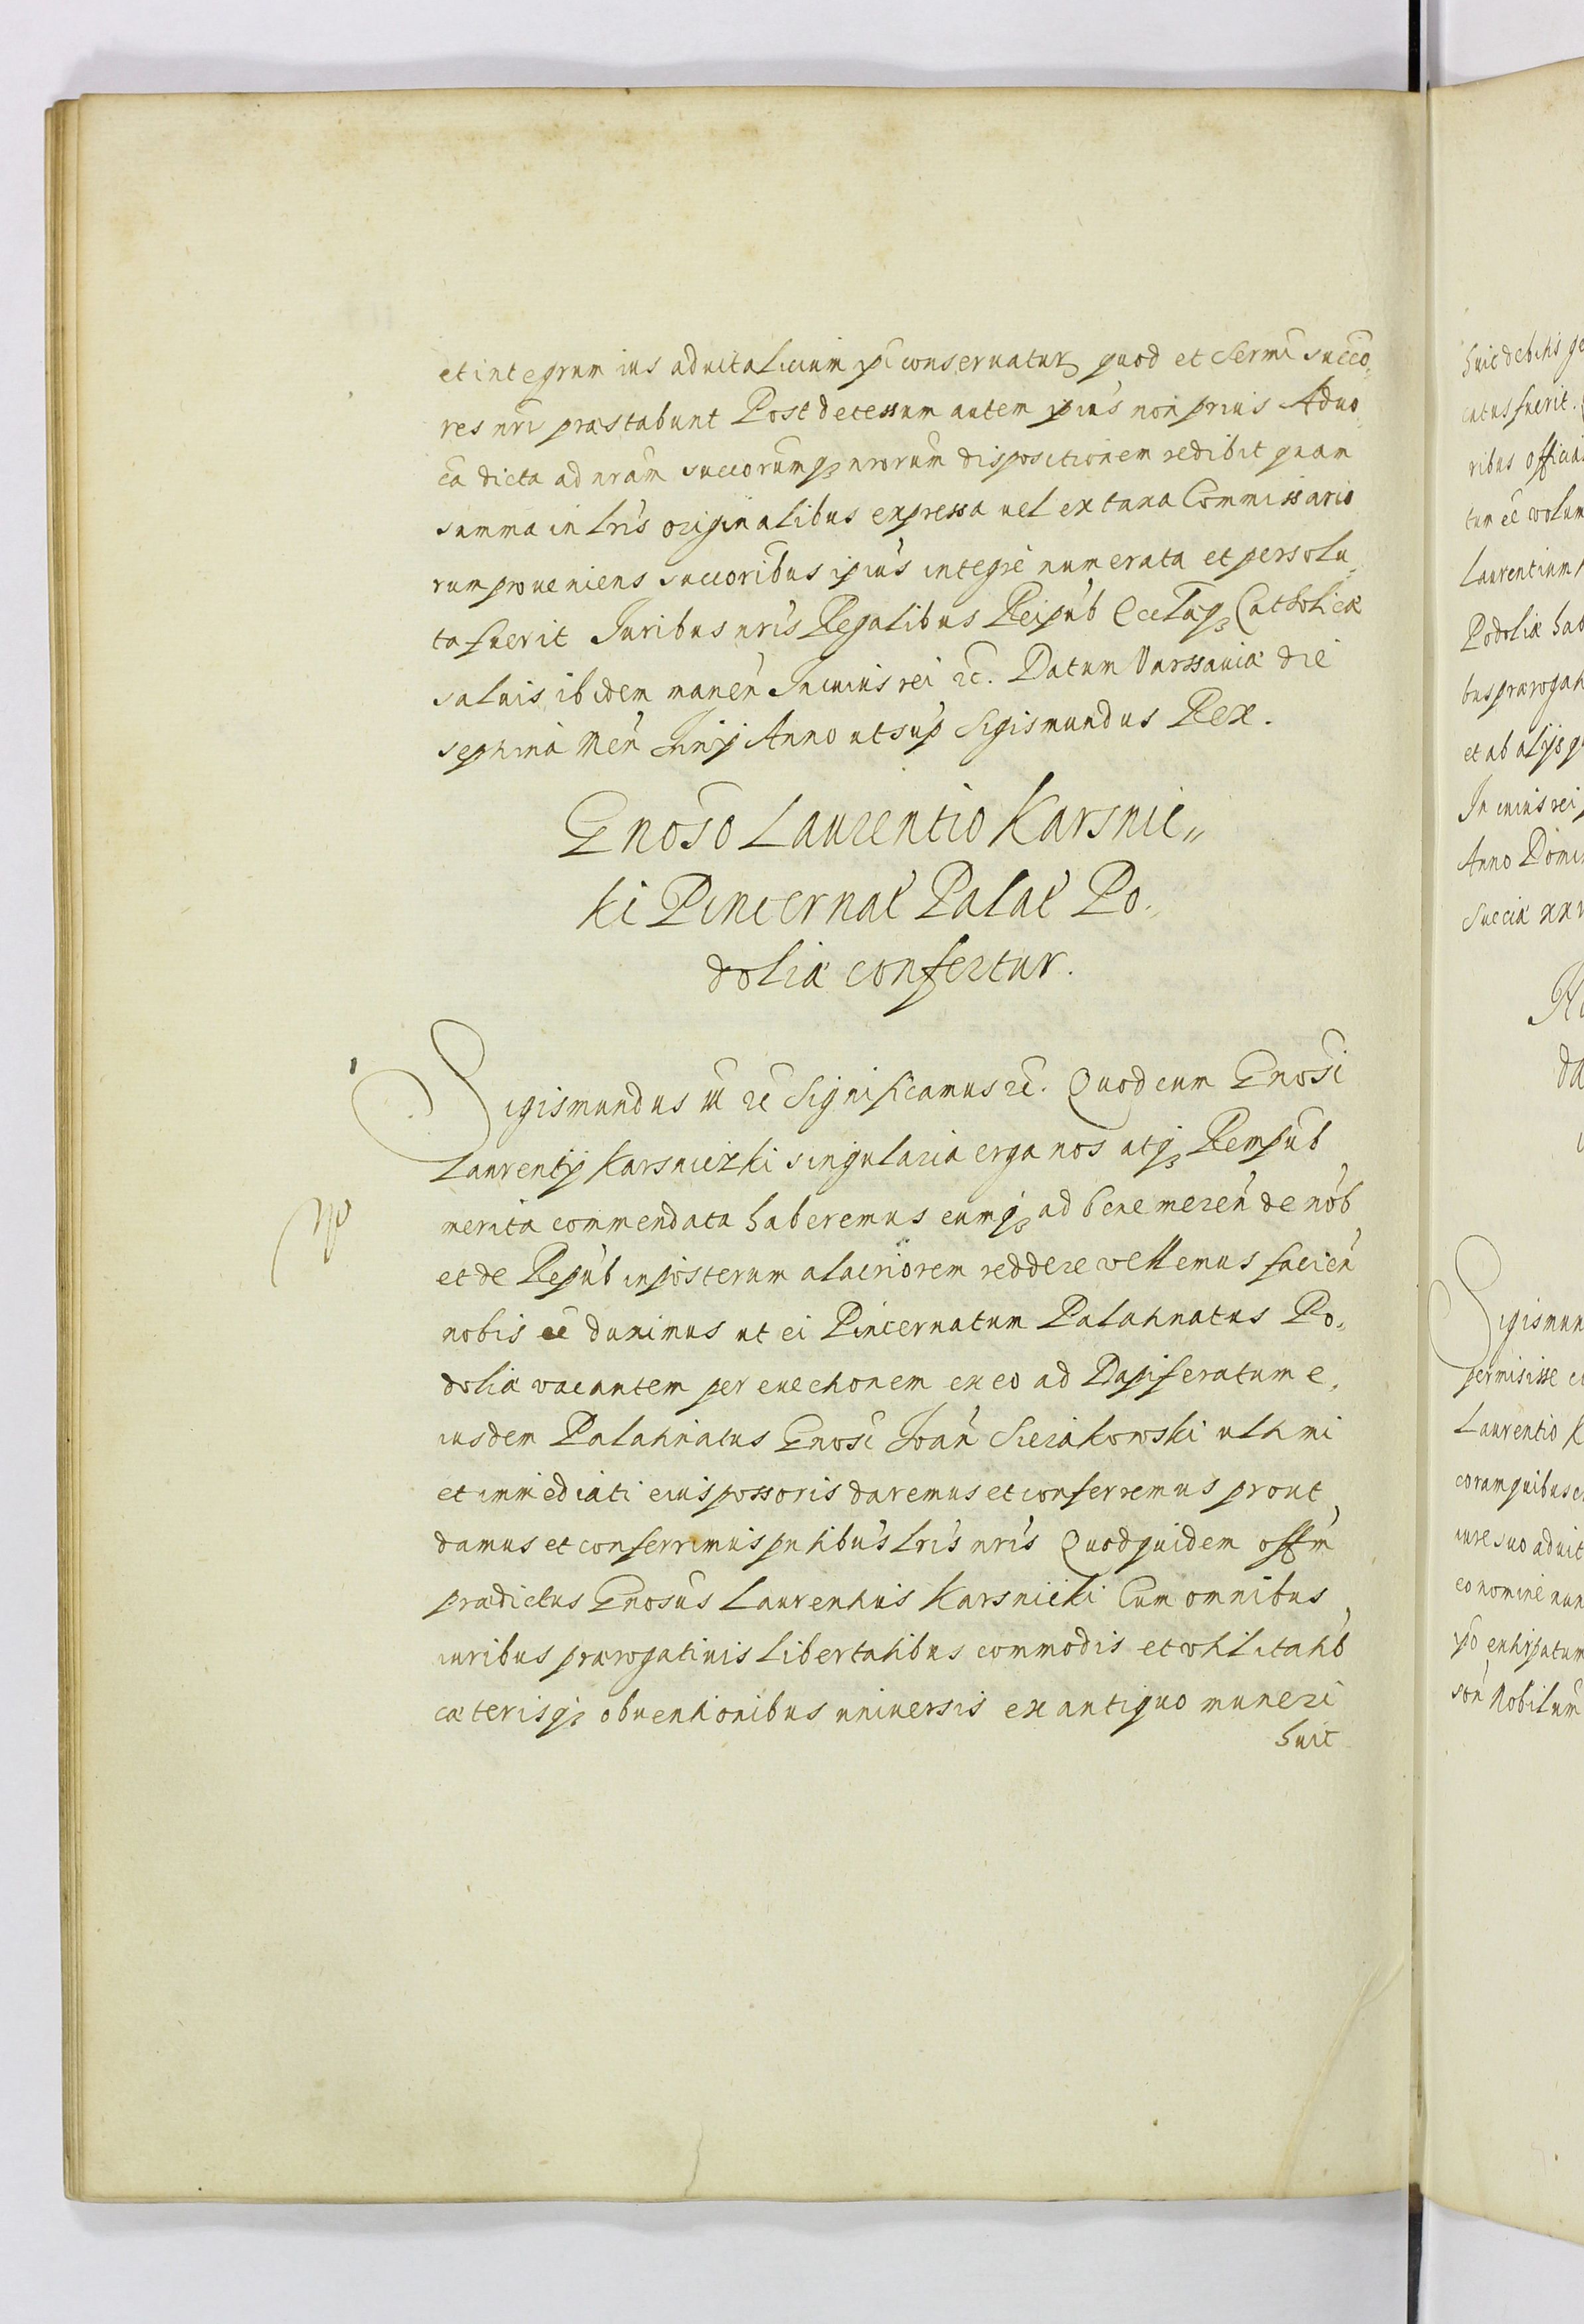 et integrum ius aduitalicium ipi conseruatur quod et Sermi succo,
res nri præstabunt Post decessum autem ipius non prius Aduo,
ca dicta ad nram succorumq3 nrorum dispositionem redibit quam
summa in lris originalibus expressa uel ex taxa Commissario
rum proueniens succoribus ipius integrè numerata et persolu,
ta fuerit Juribus nris Regalibus Reipub Ecclæq3 Catholicæ
saluis ibidem manen In cuius rei &c. Datum Varssauiæ die
septima Men Junij Anno ut sup Sigismundus Rex.
Gnoso Laurentio Karsnic„
ki Pincernat Palat Po„
doliæ confertur.
Sigismundus III &c Significamus &c. Quod cum Gnosi
Laurentij Karsniczki singularia erga nos atq3 Rempub
merita commendata haberemus eumq3 ad bene meren de nob
et de Repub inposterum alacriorem reddere vellemus facien
nobis ee duximus ut ei Pincernatum Palatinatus Po„
doliæ vacantem per euectionem ex eo ad Dapiferatum e,
iusdem Palatinatus Gnosi Joan Sierakowski ultimi
et immediati eius possoris daremus et conferremus prout
damus et conferrimus pntibus lris nris Quod quidem offm
prædictus Gnosus Laurentius Karsnicki Cum omnibus
iuribus prærogatiuis libertatibus commodis et vtilitatib
cæterisq3 obuentionibus uniuersis ex antiquo muneri
huic
huic debitis
catus fuerit.
ribus
tum ee volum
Laurentium
Podoliæ hab
et ab alijs
In cuius rei
Anno Domi
Sueciæ
da
Sigismun
permisisse
Laurentio K
coram quibus
iure suo aduit
eo nomine nun
son Nobilum